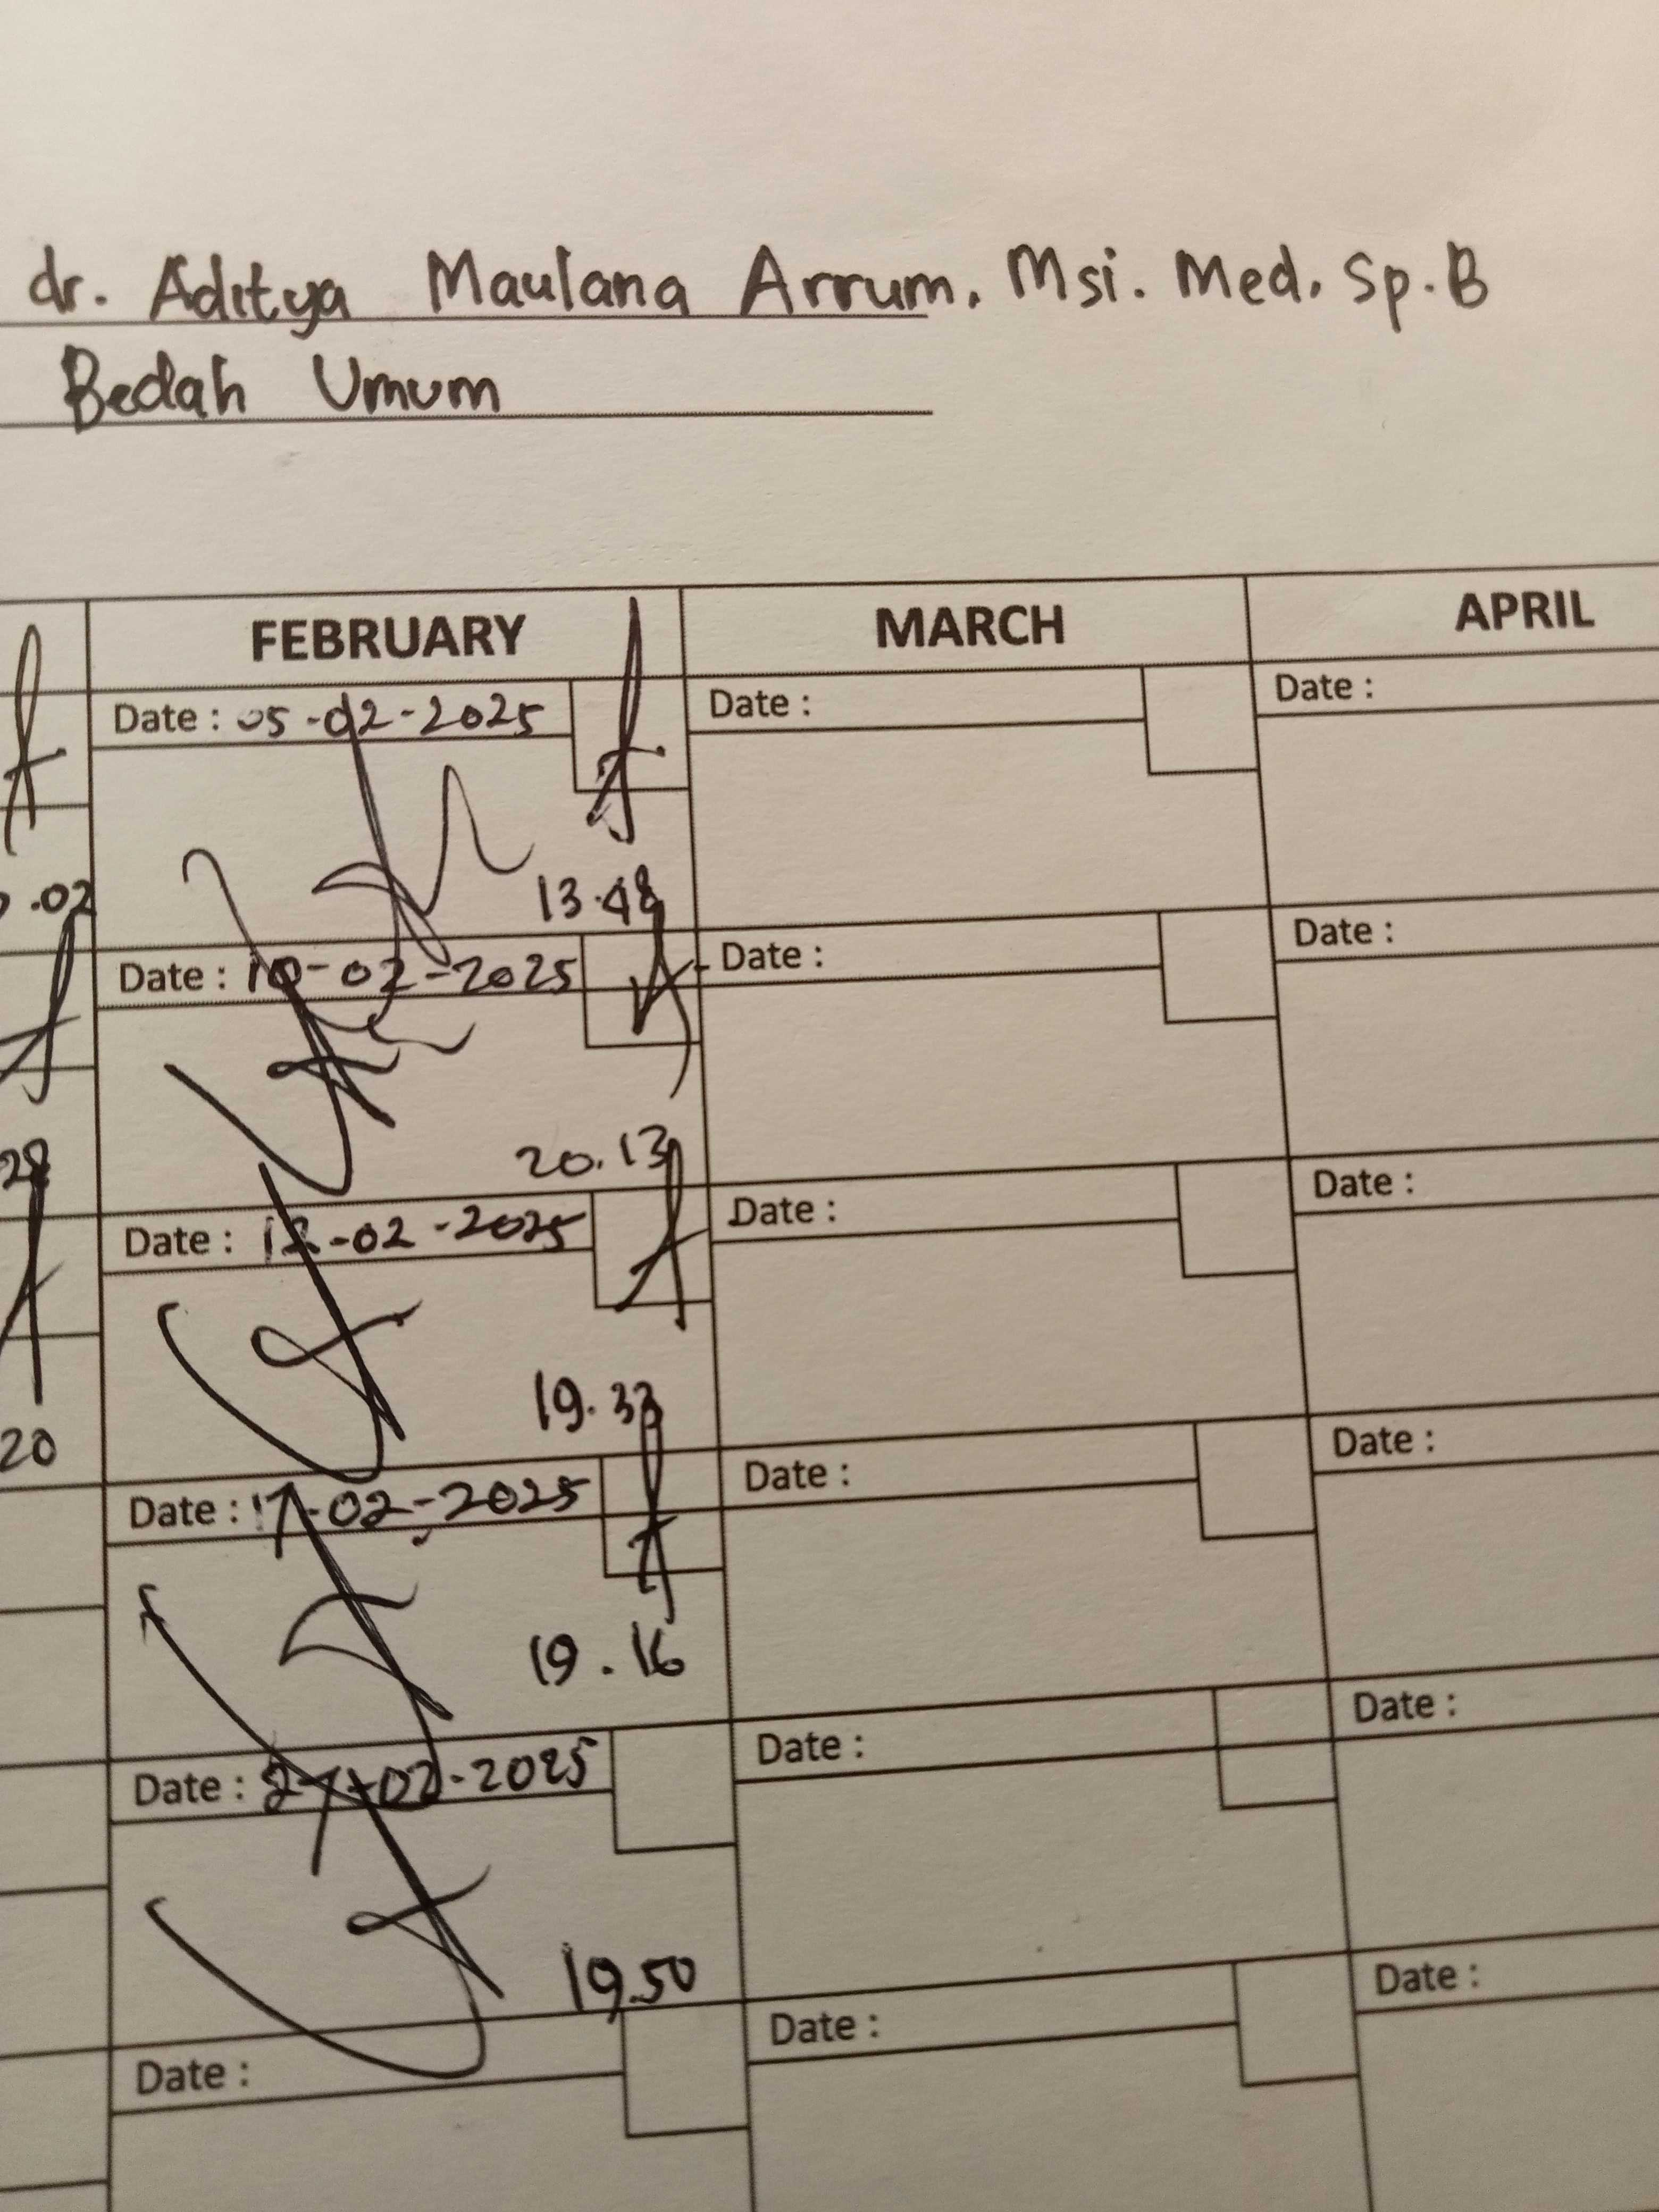 dr. Aditya Maulana Arrum, Msi. Med. Sp.B
Bedah Umum
FEBRUARY MARCH APRIL
Date : 05-02-2025 Date : Date :
.02 13.48
Date : 10-02-2025 Date : Date :
28 20.13
Date : 12-02-2025 Date : Date :
20 19.33
Date : 17-02-2025 Date : Date :
19.16
Date : 27-02-2025 Date : Date :
19.50
Date : Date : Date :